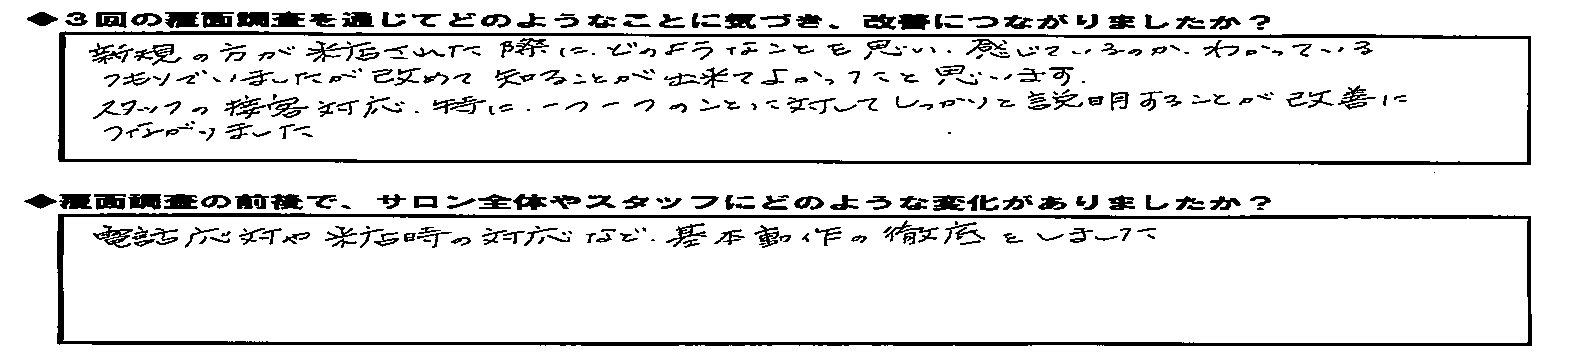 ◆3回の覆面調査を通じてどのようなことに気づき、改善につながりましたか？
新規の方が来店された際に、どのようなことを思い、感じているのか、わかっている
つもりでいましたが改めて知ることが出来てよかったと思います。
スタッフの接客対応、特に、一つ一つのことに対してしっかりと説明することが改善に
つながりました
◆覆面調査の前後で、サロン全体やスタッフにどのような変化がありましたか？
電話応対や来店時の対応など、基本動作の徹底をしました